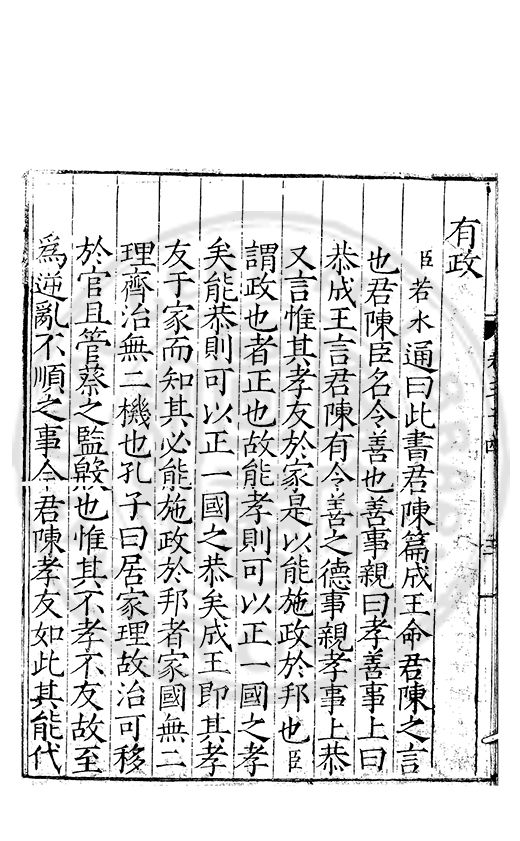 有政
臣若水通曰此書君陳篇成王命君陳之言
也君陳臣名令善也善事親曰孝善事上曰
恭成王言君陳有令善之德事親孝事上恭
又言惟其孝友於家是以能施政於邦也臣
謂政也者正也故能孝則可以正一國之孝
矣能恭則可以正一國之恭矣成王即其孝
友于家而知其必能施政於邦者家國無二
理齊治無二機也孔子曰居家理故治可移
於官且管蔡之監殷也惟其不孝不友故至
爲逆亂不順之事今君陳孝友如此其能代